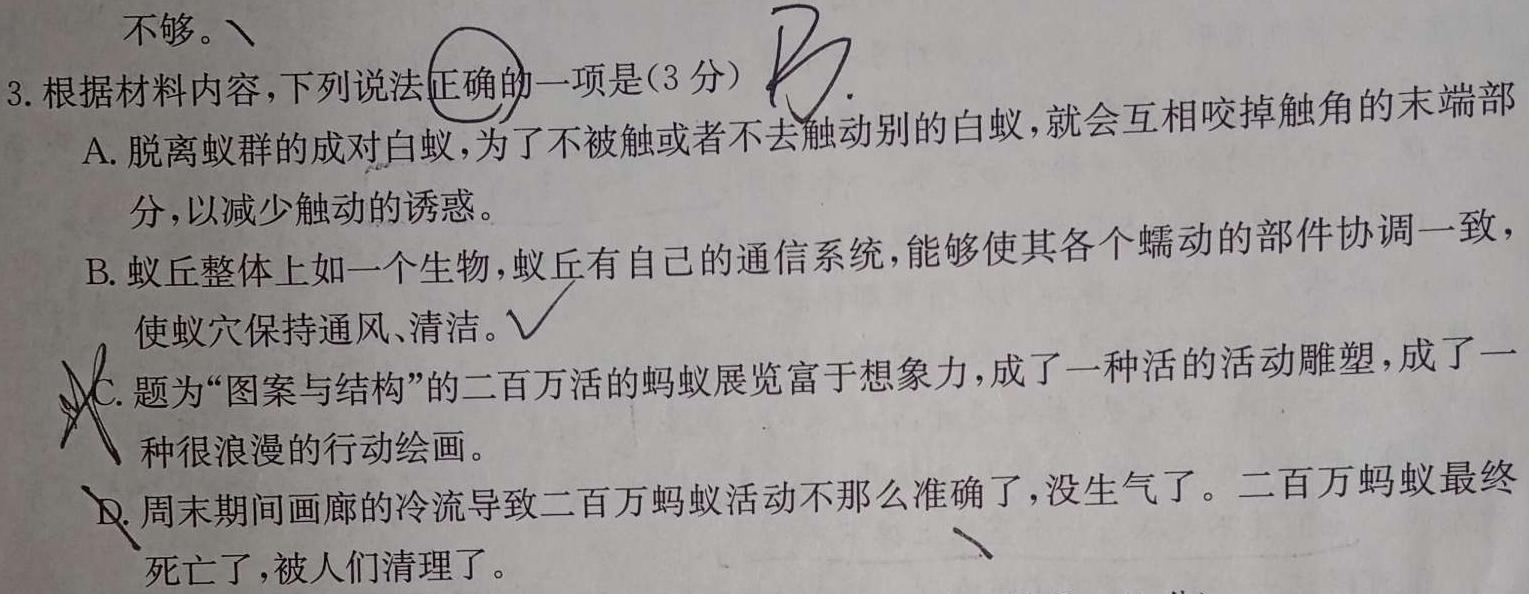 不够。
3. 根据材料内容,下列说法正确的一项是(3分) B.
A. 脱离蚁群的成对白蚁,为了不被触或者不去触动别的白蚁,就会互相咬掉触角的末端部
分,以减少触动的诱惑。
B. 蚁丘整体上如一个生物,蚁丘有自己的通信系统,能够使其各个蠕动的部件协调一致,
使蚁穴保持通风、清洁。
C. 题为“图案与结构”的二百万活的蚂蚁展览富于想象力,成了一种活的活动雕塑,成了一
种很浪漫的行动绘画。
D. 周末期间画廊的冷流导致二百万蚂蚁活动不那么准确了,没生气了。二百万蚂蚁最终
死亡了,被人们清理了。